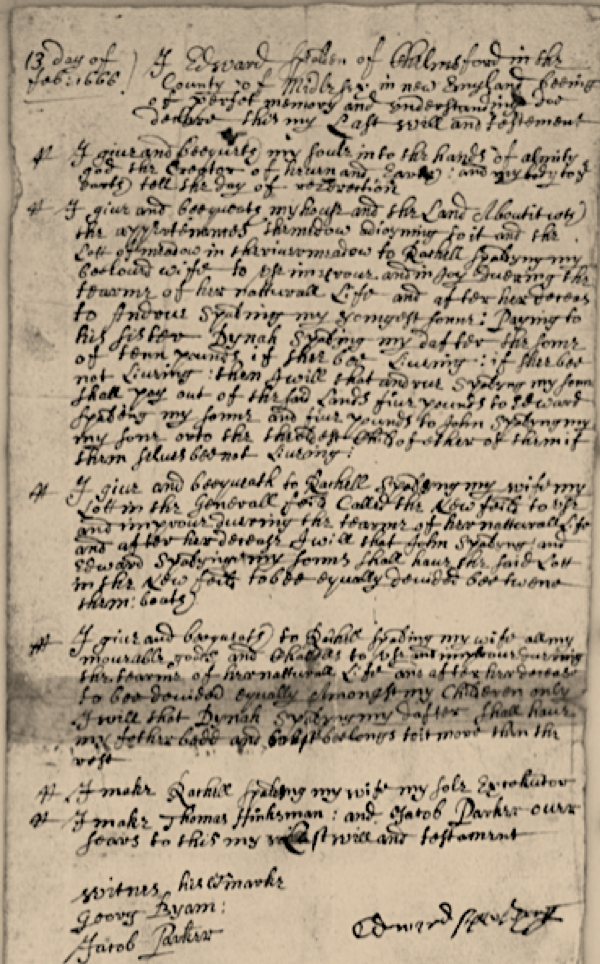 13 day of
Feb: 1666
I Edward Spolden of Chelmsford in the
County of Midlesex in new England beeing
of perfect memory and understanding doe
declare this my Last will and testement
I giue and beequeets my soule into the hands of almity
god the Creator of heuen and Earth: and my body to
earth tell the day of
I giue and beequeats my house and the Land About it with
the appertenances the medow adioyning to it and the
Lott of meadow in the riuermeadow to Rachell Spalding my
beeloued wife to use improue and inioy duering the
tearme of her natturall Life and after her deceas
to Androue Spalding my yomgest sonne: Paying to
his sister Dynah Spalding my dafter the some
of tenn pounds if shee bee Liuing: if shee bee
not Liuing: then I will that Andrue Spalding my sonn
shall pay out of the said Lands fiue pounds to Edward
Spalding my sonne and fiue pounds to John Spalding my
my sonn or to the theldest Child of ether of them if
them selues bee not Liuing:
I giue and beequeath to Rachell Spalding my wife my
Lott in the Generall feild Called the New feild to use
and improue duering the tearme of her natturall Life
and after her decease I will that John Spalding and
Edward Spalding my sonns shall haue the said Lott
in the New feild to bee equally deuided beetwene
them: boath
I giue and beequeath to Rachell Spalding my wife all my
mouerable goods and Chattles to use and improue duering
the tearme of her natturall Life and after her decease
to bee deuided equally Amongst my Children only
I will that Dynah Spalding my dafter shall haue
my fether bedd and beelongs to it more then the
rest
I make Rachell Spalding my wife my sole Executor
I make Thomas Hinksman: and Jacob Parker ouer
sears to this my Last will and testament
Witnes his marke
Georg Byam:
Jacob Parker
Edward